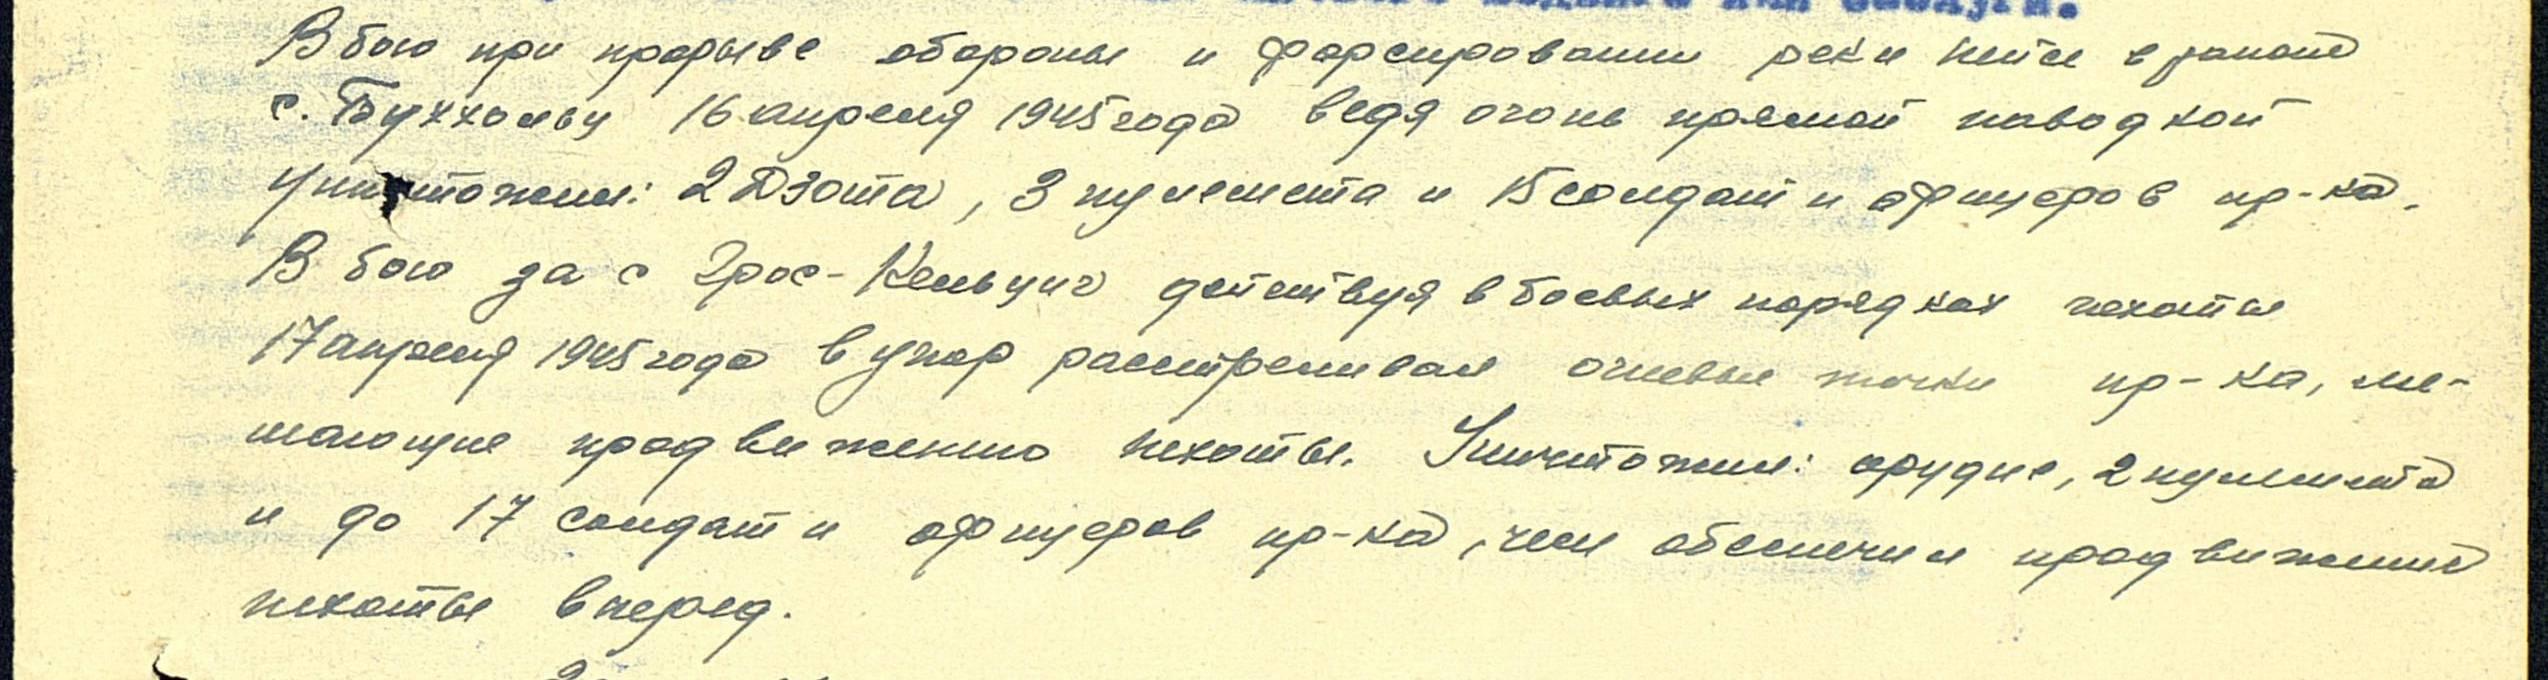 заслуги.
В бою при прорыве обороны и форсировании реки Нейсе в районе
с. Буххольц 16 апреля 1945 года ведя огонь прямой наводкой
уничтожил: 2 Дзота, 3 пулемета и 15 солдат и офицеров пр-ка.
В бою за с Грос-Кельциг действуя в боевых порядках пехоты
17 апреля 1945 года в упор расстреливал огневые точки пр-ка, ме-
шающие продвижению пехоты. Уничтожил: орудие, 2 пулемета
и до 17 солдат и офицеров пр-ка, чем обеспечил продвижение
пехоты вперед.